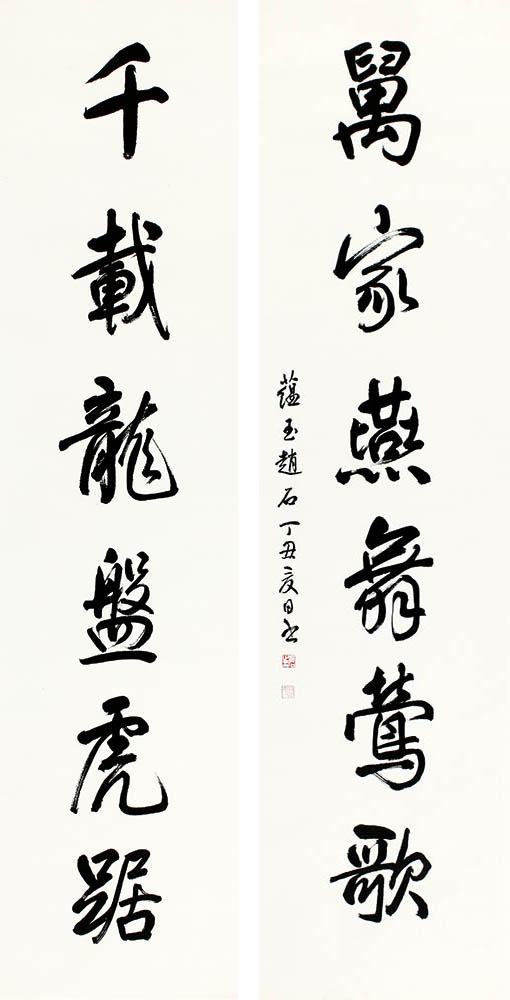 萬家燕舞鶯歌
蕴玉趙石丁丑夏日書
千載龍盤虎踞